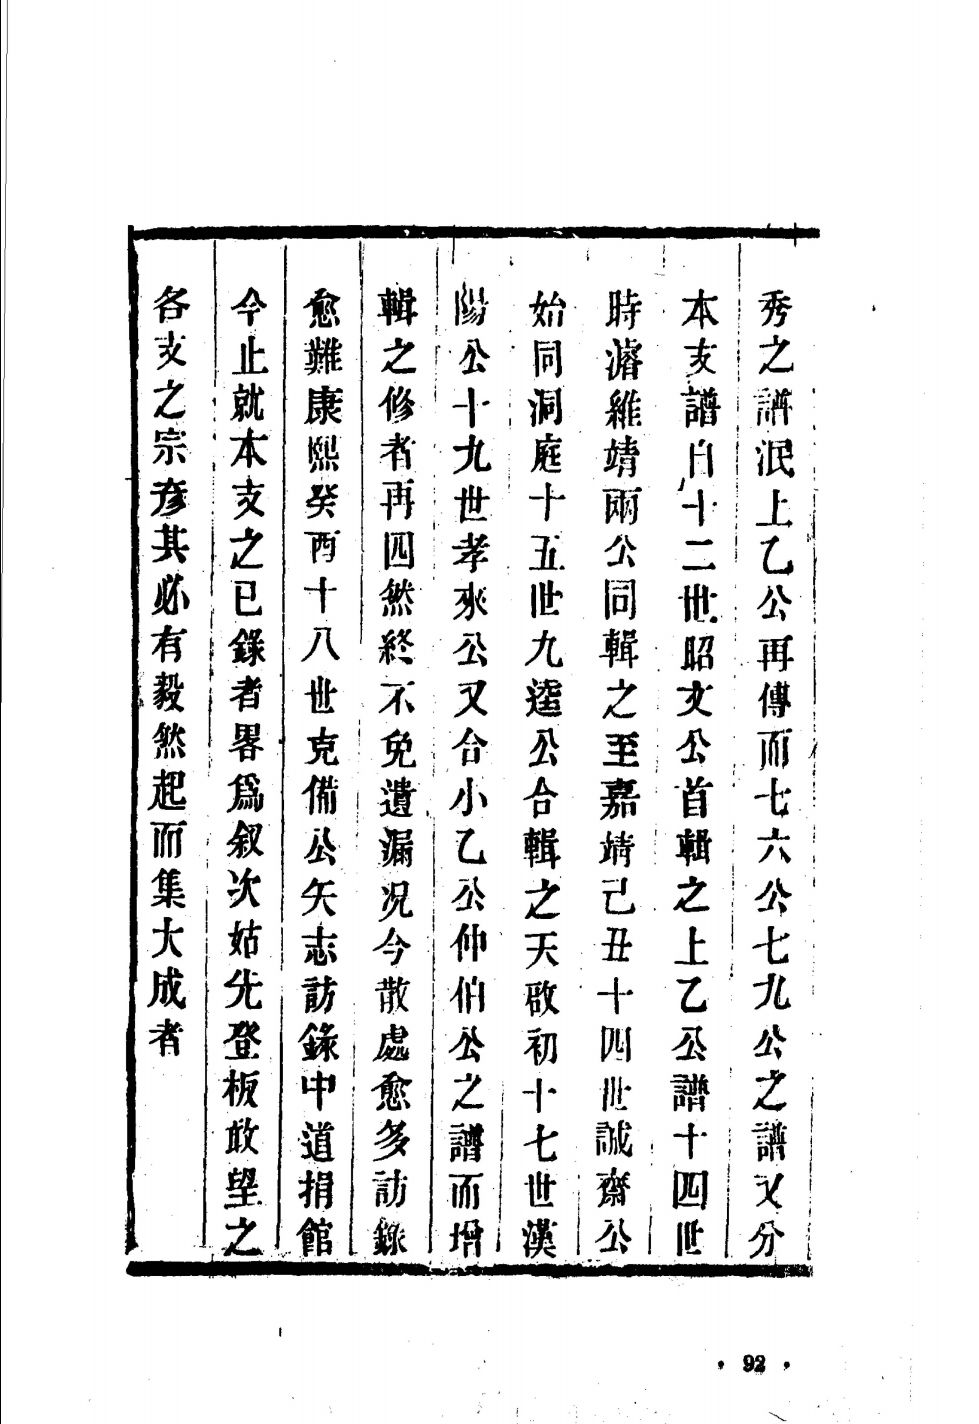 秀之譜泯上乙公再傳而七六公七九公之譜又分
本支譜自十二世昭文公首輯之上乙公譜十四世
時濬維靖兩公同輯之至嘉靖己丑十四世誠齋公
始同洞庭十五世九逵公合輯之天啟初十七世漢
陽公十九世孝來公又合小乙公仲伯公之譜而增
輯之修者再四然終不免遺漏况今散處愈多訪錄
愈難康熙癸酉十八世克備公矢志訪錄中道捐館
今止就本支之已錄者畧爲叙次姑先登板敢望之
各支之宗彥其必有毅然起而集大成者
• 92 •